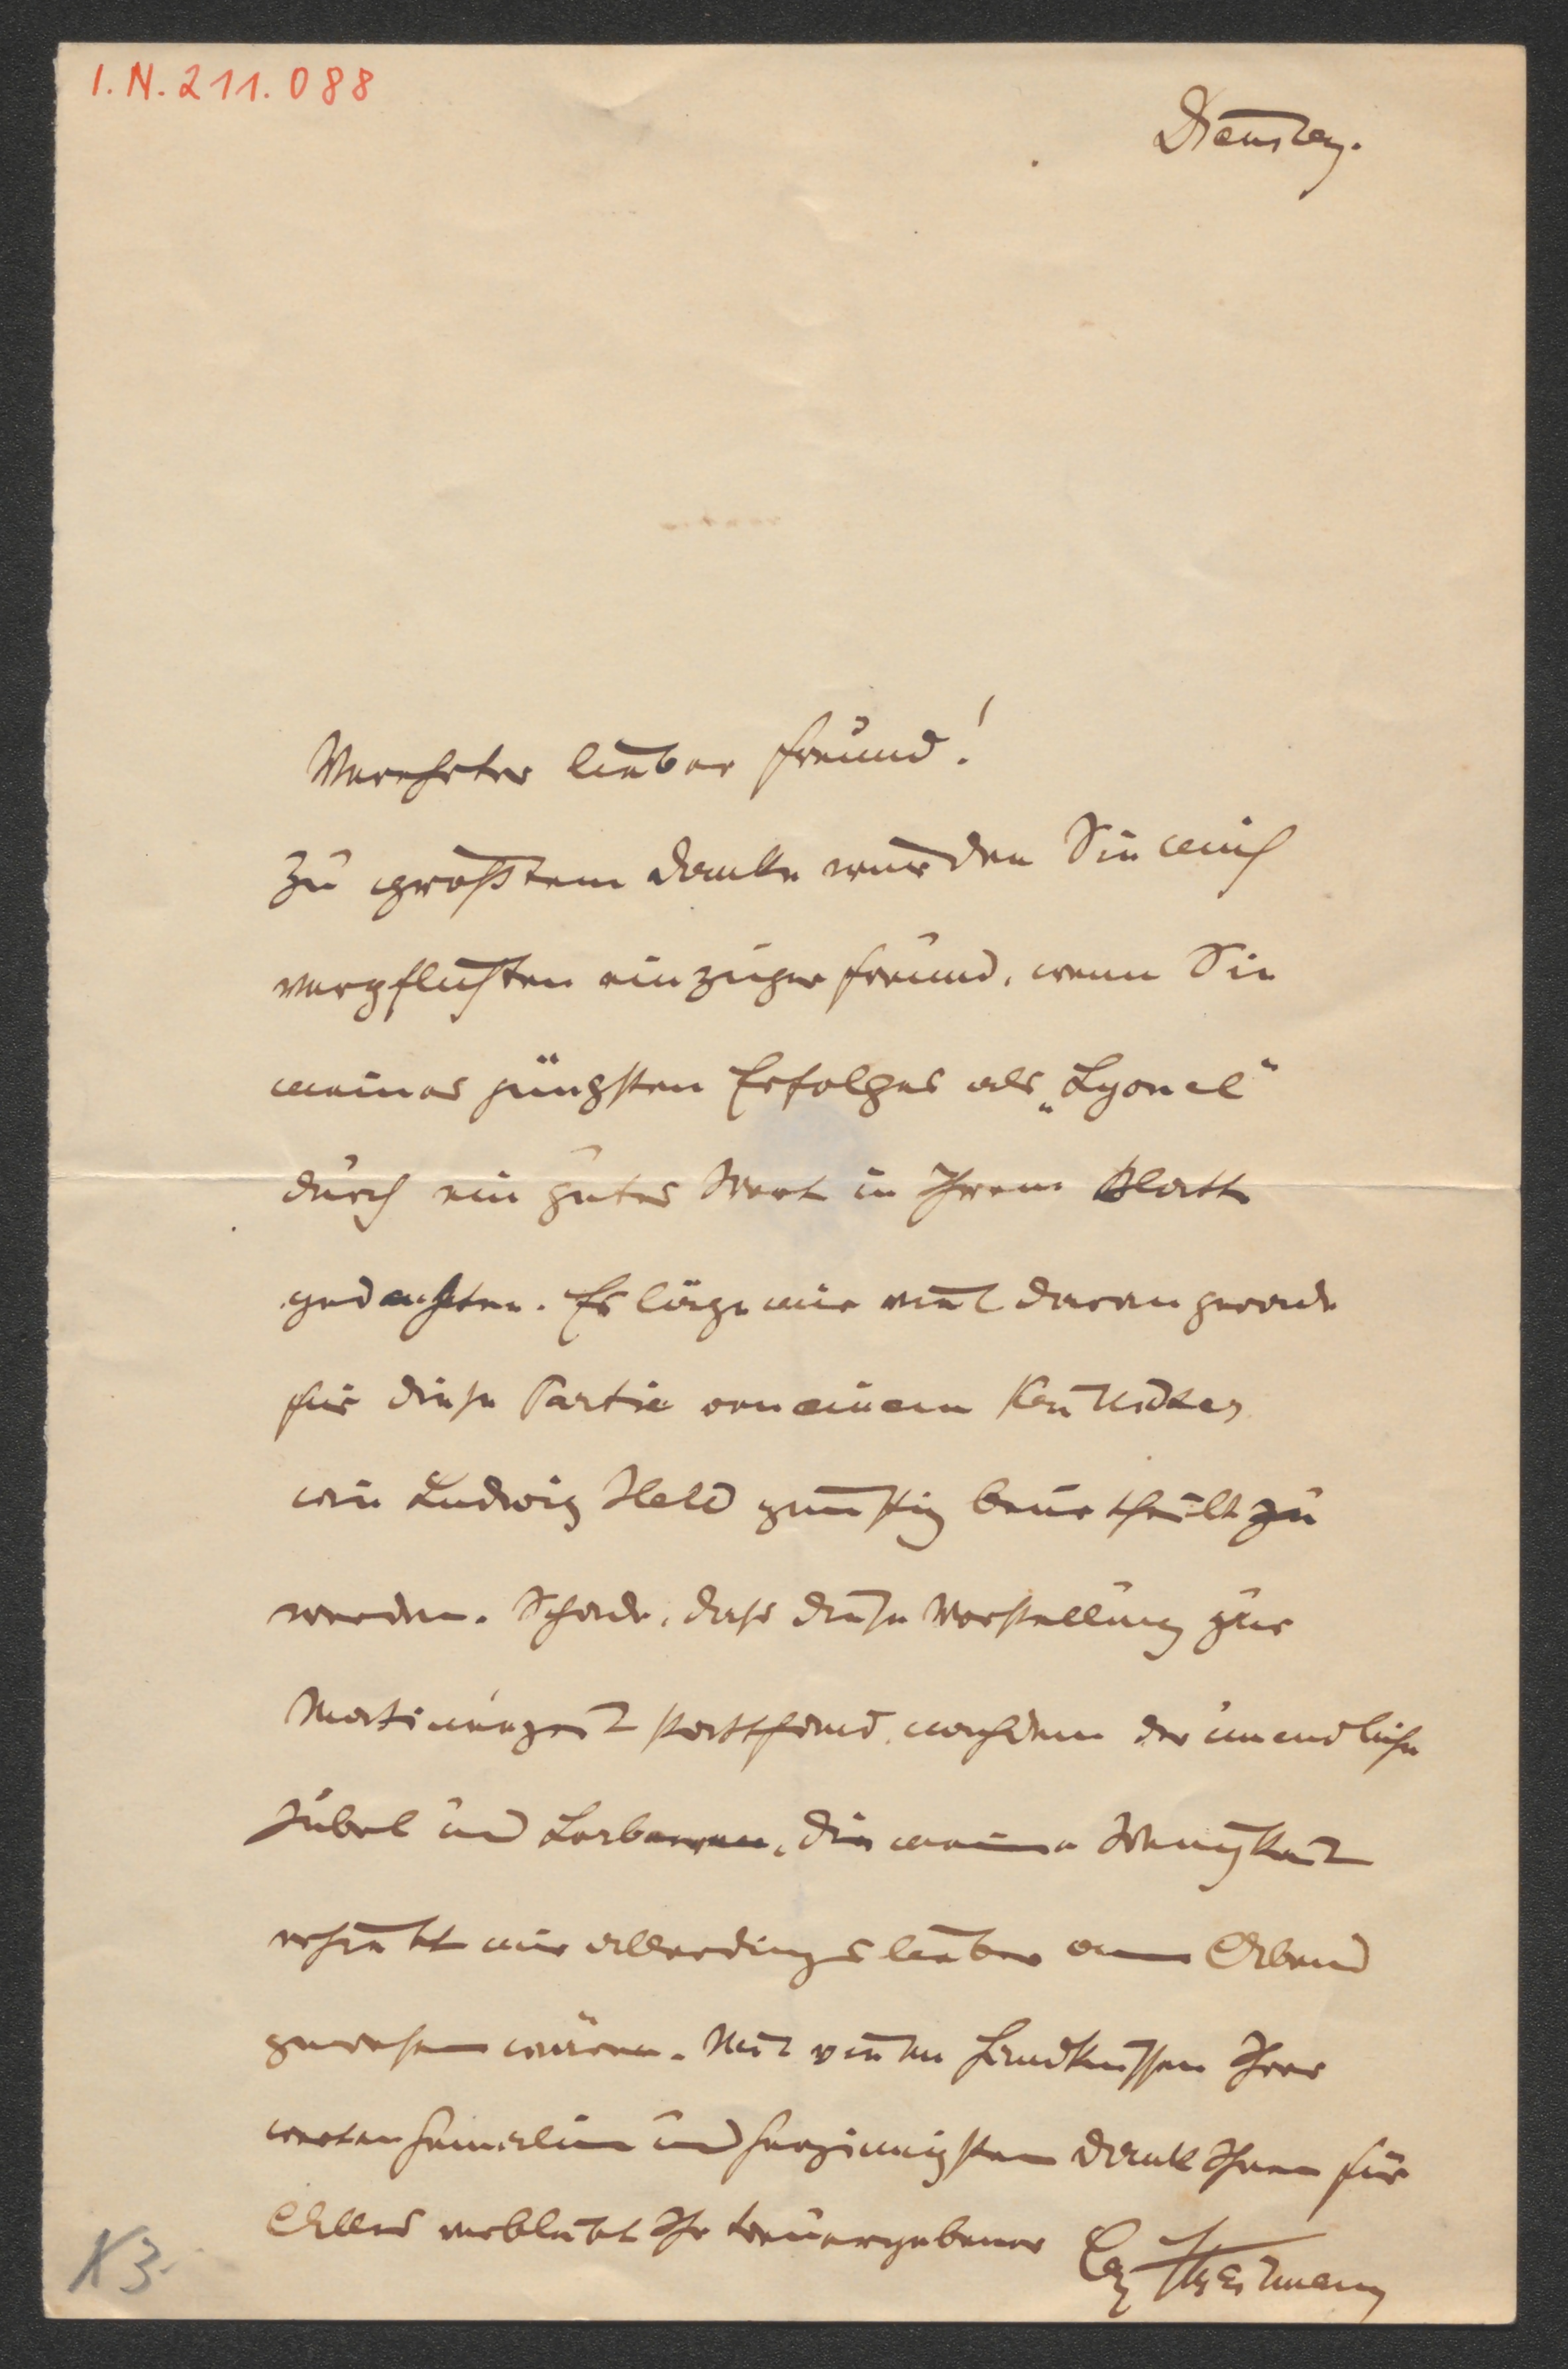 I.N. 211.088
Dienstag.
Verehrter lieber Freund!
Zu größtem Danke würden Sie mich
verpflichten einziger Freund, wenn Sie
meines jüngsten Erfolges als „Lyonel“
durch ein gutes Wort in Ihrem Blatte
gedächten. Es läge mir viel daran gerade
für diese Partie von einem
wie Ludwig Held günstig beurtheilt zu
werden. Schade, dass diese Vorstellung zur
Matinéezeit stattfand, nachdem der unendliche
Jubel und Lorbeeren, die meine Wenigkeit
erhielt mir allerdings lieber am Abend
gewesen wären. Mit vielen Handküssen Ihrer
werten Gemalin und herzinnigsten Dank Ihnen für
Alles verbleibt Ihr treuergebener
K3.